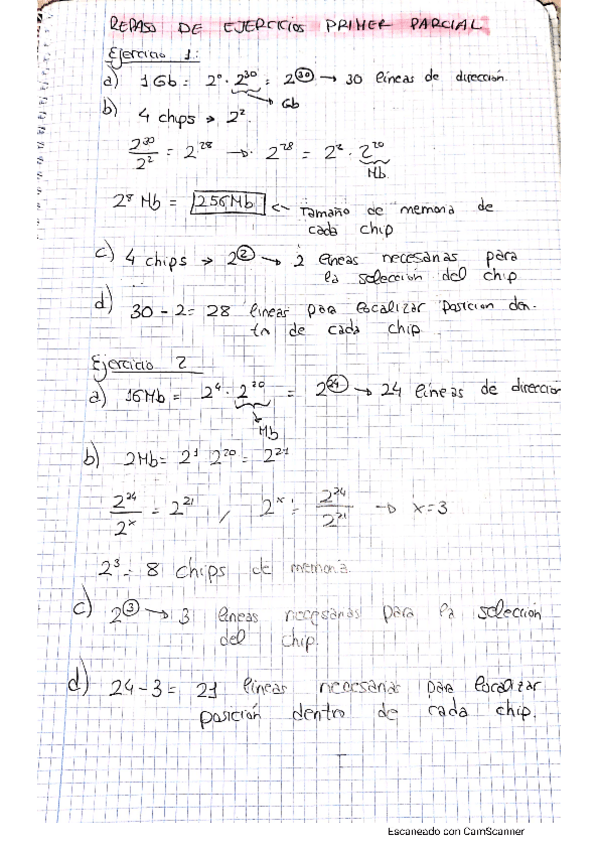 REPASO DE EJERCICIOS PRIMER PARCIAL
Ejercicio 1:
a) 1Gb = 2⁰ · 2³⁰ = 2³⁰ → 30 lineas de dirección.
Gb
b) 4 chps → 2²
2³⁰/2² = 2²⁸ → 2²⁸ = 2⁸ · 2²⁰
Mb
2⁸ Mb = 256Mb ← Tamaño de memoria de
cada chip
c) 4 chips → 2² → 2 lineas necesarias para
la selección del chip
d) 30 - 2 = 28 lineas para localizar posicion den-
tro de cada chip
Ejercicio 2
a) 16Mb = 2⁴ · 2²⁰ = 2²⁴ → 24 lineas de direccion
Mb
b) 2Mb = 2¹ 2²⁰ = 2²¹
2²⁴/2ˣ = 2²¹ / 2ˣ = 2²⁴/2²¹ → x=3
2³ = 8 chips de memoria.
c) 2³ → 3 lineas necesarias para la selección
del chip.
d) 24-3 = 21 lineas necesarias para localizar
posición dentro de cada chip.
Escaneado con CamScanner